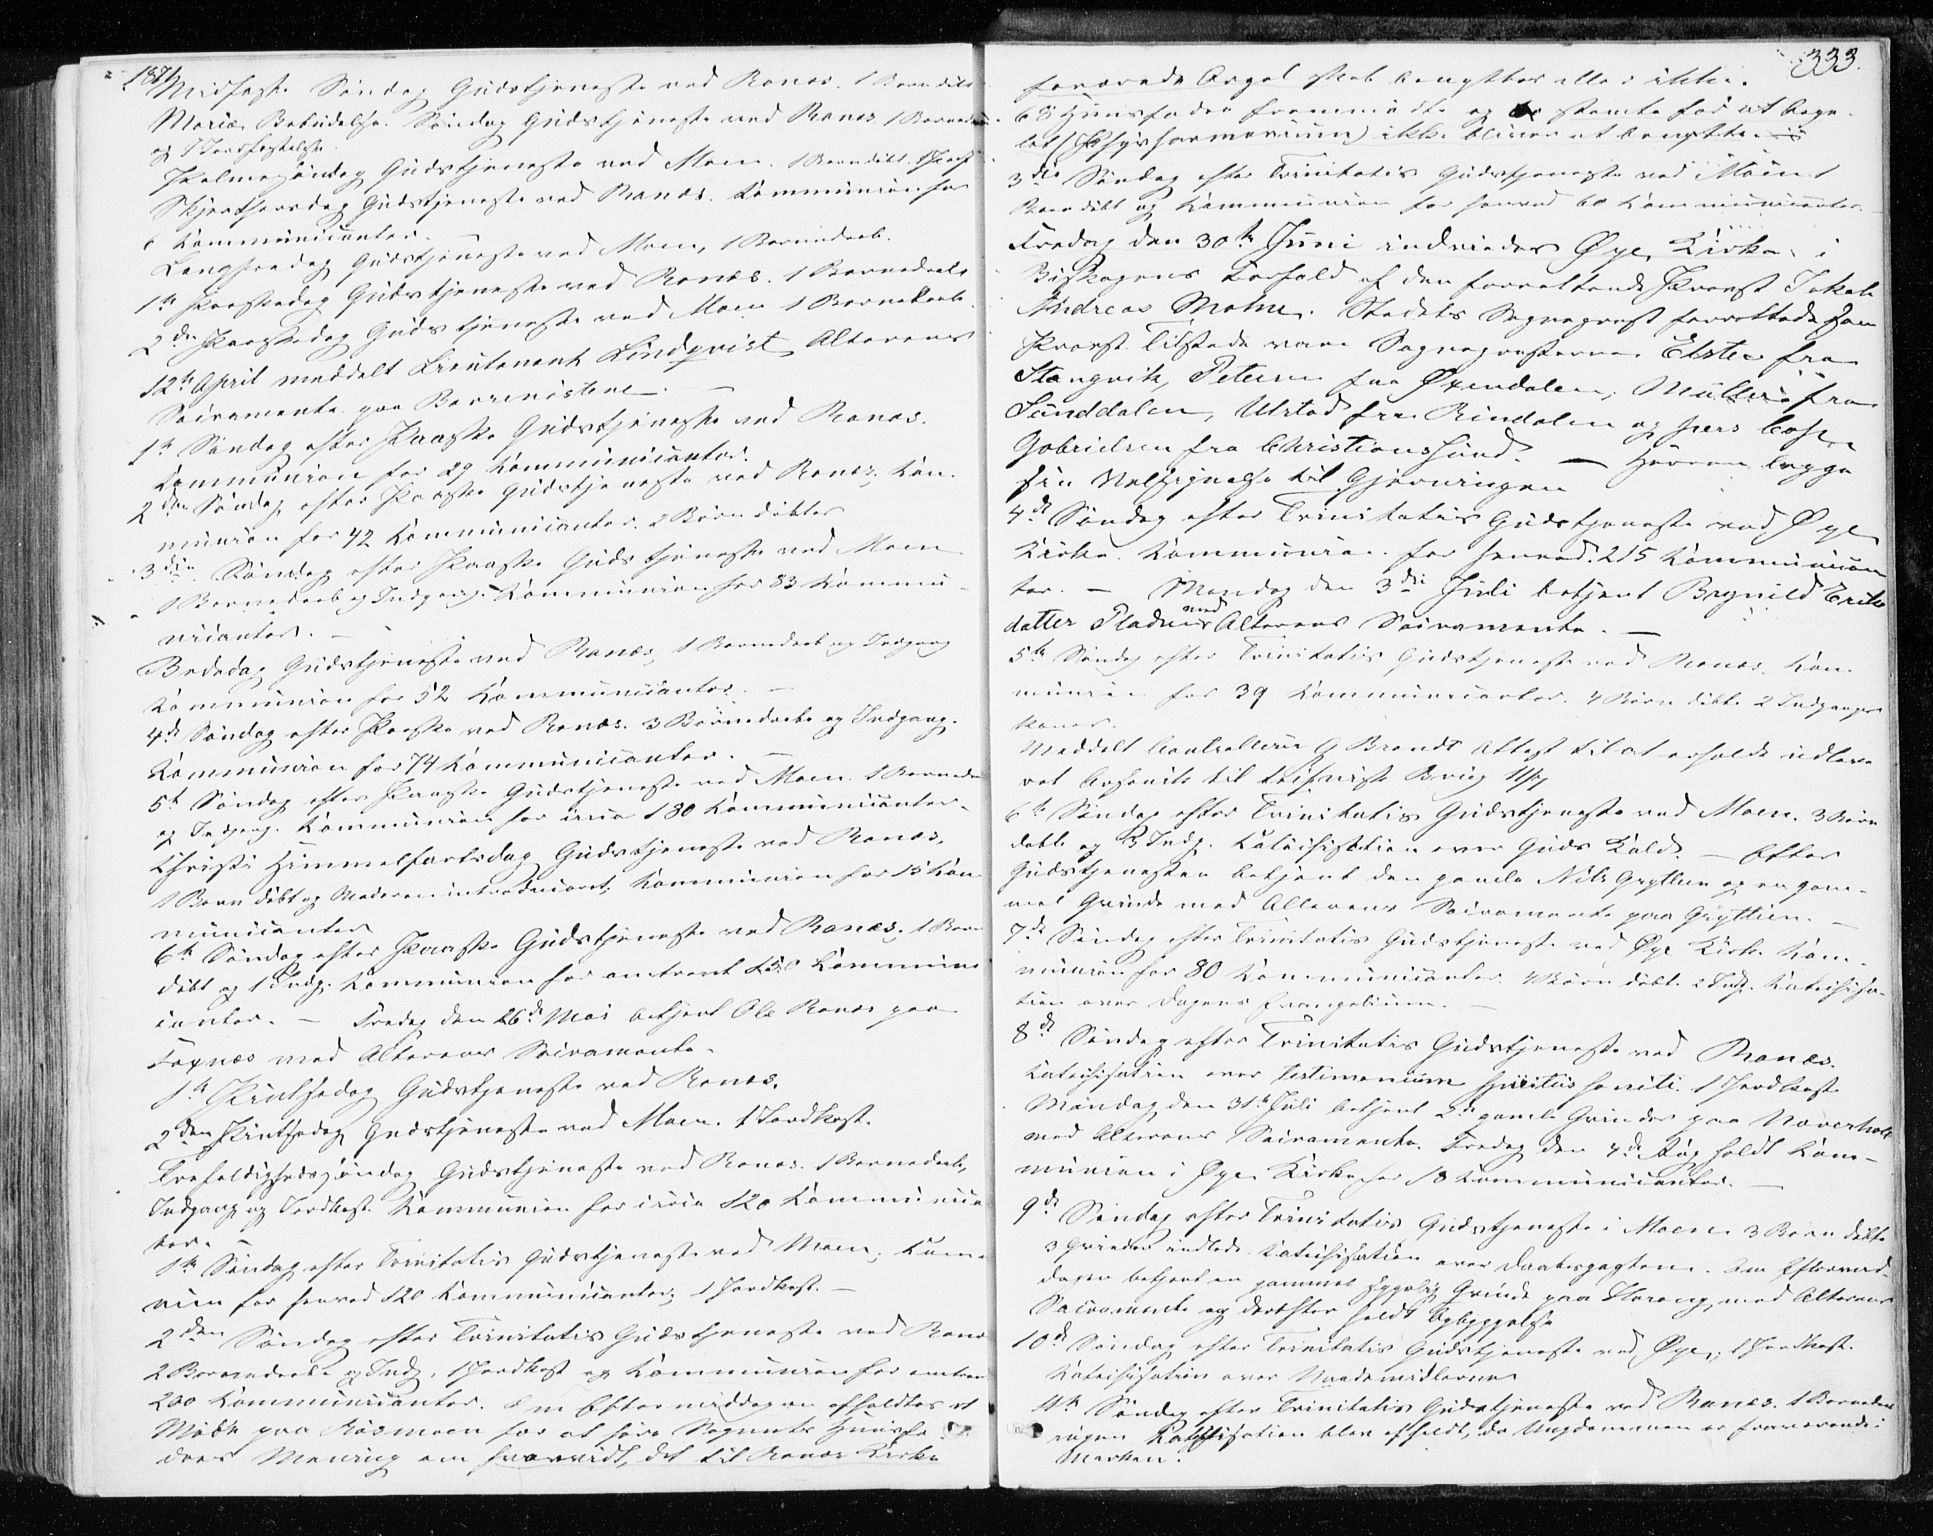 1871
Midfaste Søndag Gudstjeneste ved Ranæs. 1 Barn døbt
Mariæ Bebudelse. Søndag Gudstjeneste ved Ranæs 1 Barnedaab
og 1 Jordfæstelse.
Palmesøndag Gudstjeneste ved Moen. 1 Barn døbt.
Skjærthorsdag Gudstjeneste ved Ranæs. Kommunion for
6 Kommunicanter. —
Langfredag Gudstjeneste ved Moen, 1 Barnedaab.
1ste Paaskedag Gudstjeneste ved Ranæs. 1 Barnedaab
2den Paaskedag Gudstjeneste ved Moen 1 Barnedaab.
12te April meddelt Lieutenant Lindqvist Alterens
Sacramente paa Bævernistene. —
1ste Søndag efter Paaske Gudstjeneste ved Ranæs.
Kommunion for 29 Kommunicanter.
2den Søndag efter Paaske Gudstjeneste ved Ranæs, Kom-
munion for 42 Kommunicanter. 2 Børn døbte
3die Søndag efter Paaske Gudstjeneste ved Moen
1 Barnedaab og Indgang. Kommunion for 83 Kommu-
nicanter. —
Bededag Gudstjeneste ved Ranæs, 1 Barnedaab og Indgang
Kommunion for 52 Kommunicanter. —
4de Søndag efter Paaske ved Ranæs. 3 Barnedaabe og Indgang.
Kommunion for 74 Kommunicanter. —
5te Søndag efter Paaske Gudstjeneste ved Moen. 1 Barnedaab
og Indgang. Kommunion for circa 180 Kommunicanter.
Christi Himmelfartsdag Gudstjeneste ved Ranæs.
1 Barn døbt og Moderen introduceret. Kommunion for 15 Kom-
municanter
6te Søndag efter Paaske Gudstjeneste ved Ranæs. 1 Barn
døbt og 1 Indg. Kommunion for omtrent 150 Kommuni-
canter. — Fredag den 26de Mai betjent Ole Ranæs paa
Foxnæs med Alterens Sacramente.
1ste Pintsedag Gudstjeneste ved Ranæs.
2den Pintsedag Gudstjeneste ved Moen. 1 Jordkast.
Trefoldighedssøndag Gudstjeneste ved Ranæs. 1 Barnedaab,
Indgang og Jordkast. Kommunion for circa 120 Kommunican-
ter. —
1ste Søndag efter Trinitatis Gudstjeneste ved Moen, Kom-
nion for henved 120 Kommunicanter, 1 Jordkast. —
2den Søndag efter Trinitatis Gudstjeneste ved Ranæs
2 Barnedaabe og Indg., 1 Jordkast og Kommunion for omtrent
200 Kommunicanter. Om Eftermiddagen afholdtes et
Møde paa Røsmoen for at høre Sognets Huusfæ-
dres Mening om hvorvidt det til Ranæs Kirke
333.
forærede Orgel skal benyttes eller ikke.
68 Huusfædre fremmødte og stemte for at Orge-
let (Physharmonium) ikke bliver at benytte.
3die Søndag efter Trinitatis Gudstjeneste ved Moen 1
Barn døbt og Kommunion for henved 60 Kommunicanter.
Fredag den 30te Juni indviedes Øye Kirke i
Biskopens Forfald af den forrettende Provst Jakob
Andreas Molne. Stedets Sognepræst forrettede som
Provst. Tilstede vare Sognepræsterne Elster fra
Stangvik, Petersen fra Øxendalen, Müller fra
Sunddalen, Ulstad fra Rindalen og pers. Cap.
Gabrielsen fra Christianssund. — Herren lægge
sin Velsignelse til Gjerningen
4de Søndag efter Trinitatis Gudstjeneste ved Øye
Kirke. Kommunion for henved 215 Kommunican-
ter. — Mandag den 3die Juli betjent Brynild Eriks
datter Pladsen med Alterens Sacramente. —
5te Søndag efter Trinitatis Gudstjeneste ved Ranæs. Kom-
munion for 39 Kommunicanter. 4 Børn døbte 2 Indgangs-
koner.
Meddelt Controlleur G Brandt Attest til at erholde udleve-
ret Arsenik til teknisk Brug 11/7
6te Søndag efter Trinitatis Gudstjeneste ved Moen. 3 Børn
døbte og 3 Indg. Katechisation over Guds Kald. — Efter
Gudstjenesten betjent den gamle Nils Gryttien og en gam-
mel Qvinde med Alterens Sacramente paa Gryttien. —
7de Søndag efter Trinitatis Gudstjeneste ved Øye Kirke Kom-
munion for 80 Kommunicanter. 4 Børn døbt. 2 Indg. Katechisa-
tion over Dagens Evangelium. —
8de Søndag efter Trinitatis Gudstjeneste ved Ranæs.
Katechisation over Testimonium spiritus sancti. 1 Jordkast
Mandag den 31te Juli betjent 2 gamle Qvinder paa Naverholt
med Alterens Sacramente. Fredag den 4de Aug. holdt Kom-
munion i Øye Kirke for 18 Kommunicanter. —
9de Søndag efter Trinitatis Gudstjeneste i Moen 3 Børn døbte
3 Qvinder indledte Katechisation over Daabspagten. Om Eftermid-
dagen betjent en gammel sygelig Qvinde paa Storeng med Alterens
Sacramente og derefter holdt Opbyggelse
10de Søndag efter Trinitatis Gudstjeneste ved Øye, 1 Jordkast.
Katechisation over Naademidlerne
11te Søndag efter Trinitatis Gudstjeneste ved Ranæs. 1 Barnedaab
ingen Katechisation blev afholdt, da Ungdommen er fraværende i
Marken.